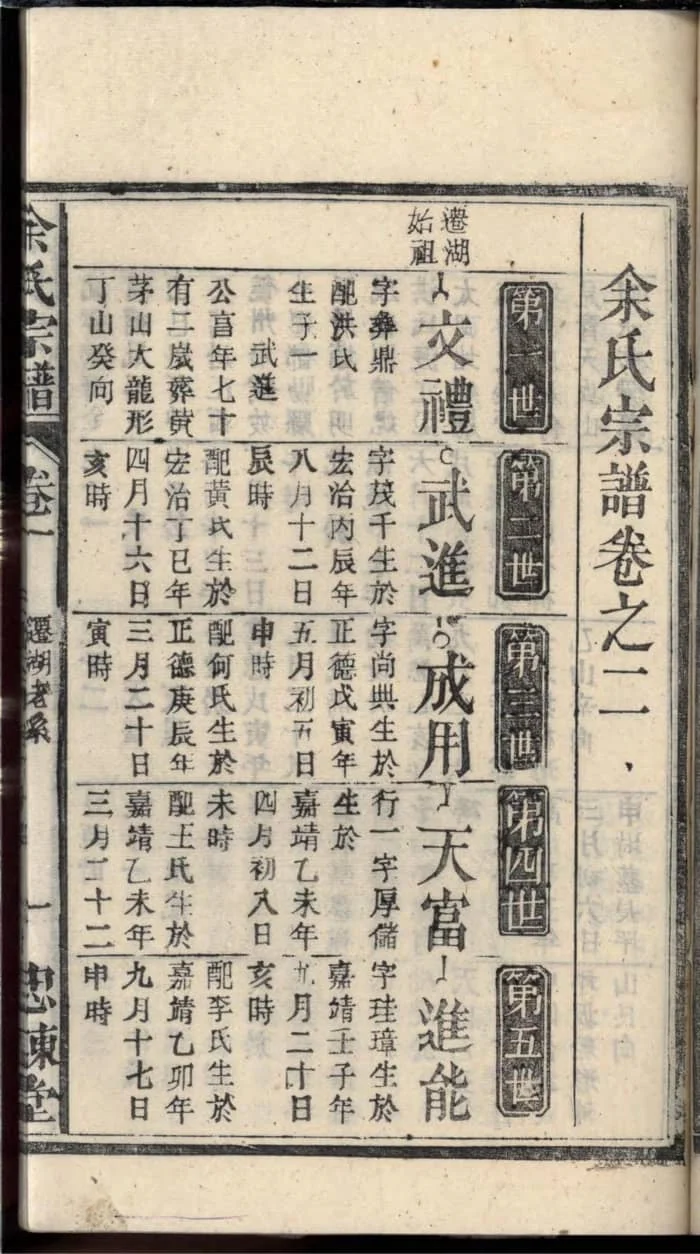 余氏宗譜卷之二
第一世
第二世
第三世
第四世
第五世
遷湖
始祖
文禮
字彝鼎
配洪氏
生子一
武進
公富年七十
有二歲葬黃
茅山大龍形
丁山癸向
武進
字茂千生於
宏治丙辰年
八月十二日
辰時
配黃氏生於
宏治丁巳年
四月十六日
亥時
成用
字尚典生於
正德戊寅年
五月初五日
申時
配何氏生於
正德庚辰年
三月二十日
寅時
天富
行一字厚儲
生於
嘉靖乙未年
四月初八日
未時
配王氏生於
嘉靖乙未年
三月二十二
進能
字珪璋生於
嘉靖壬子年
九月二十日
亥時
配李氏生於
嘉靖乙卯年
九月十七日
申時
余氏宗譜
卷一
遷湖老系
一
忠諫堂